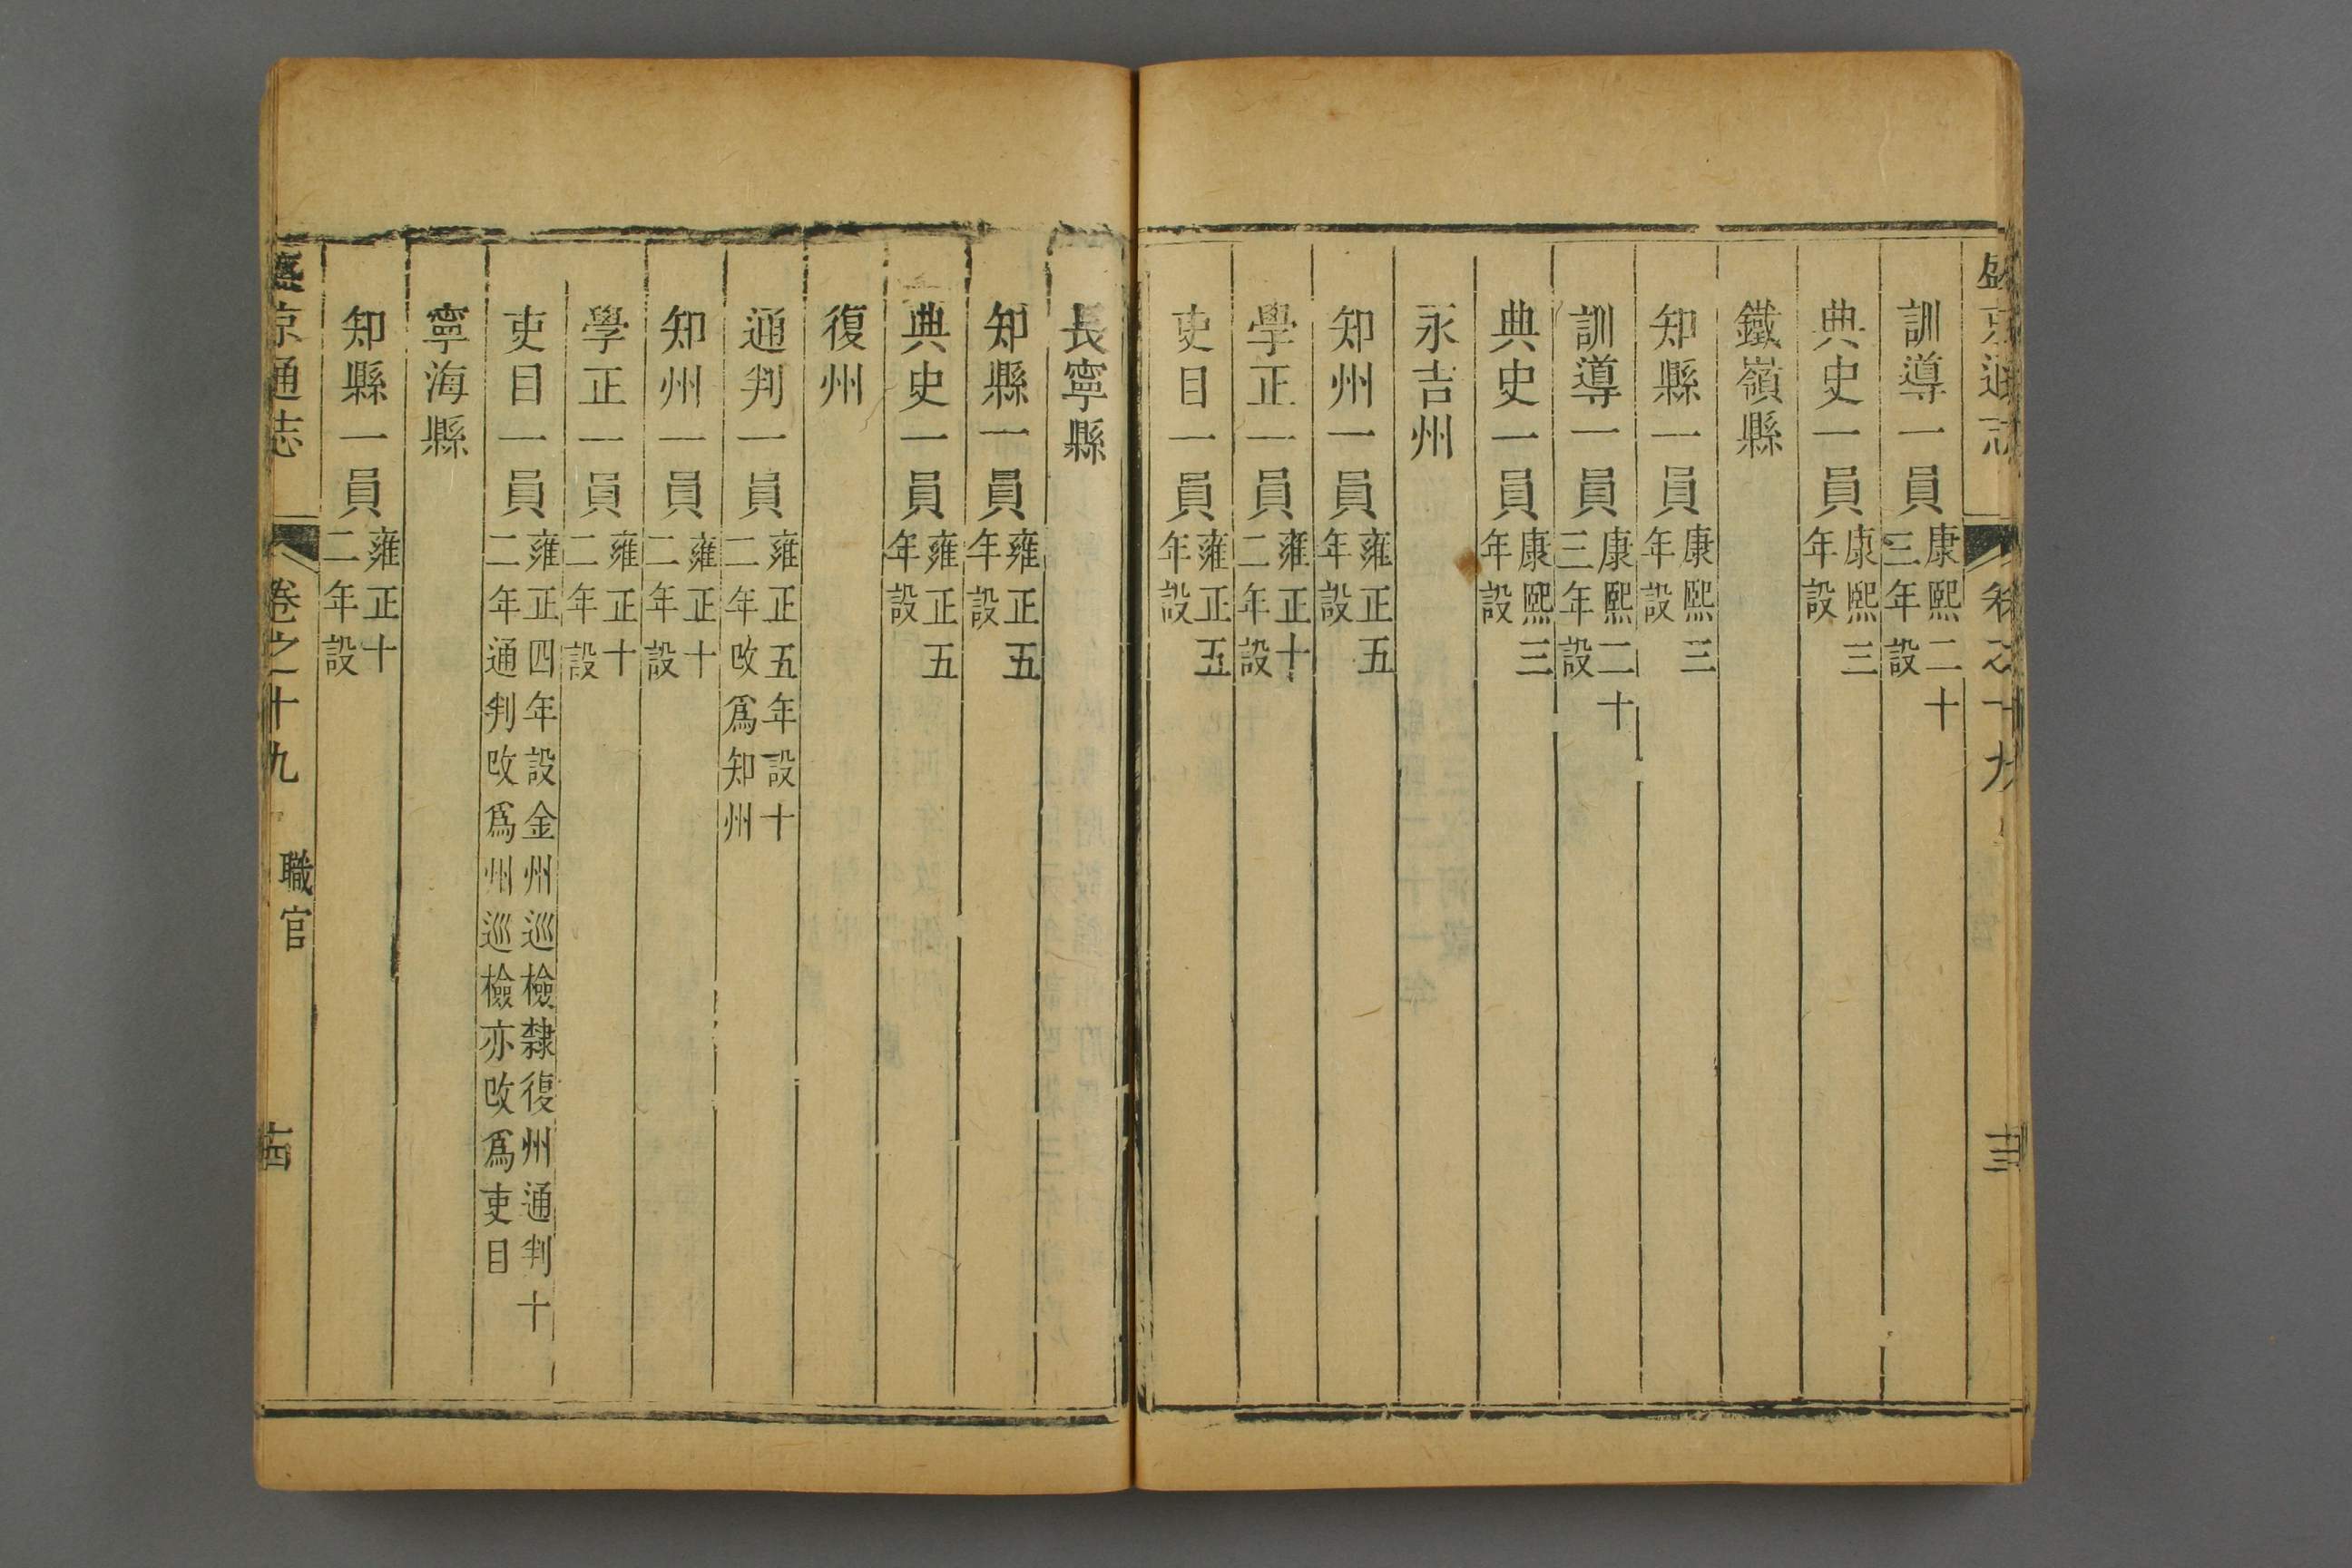 盛京通志 卷之十九 十三
訓導一員康熙二十三年設
典史一員康熙三年設
鐵嶺縣
知縣一員康熙三年設
訓導一員康熙二十三年設
典史一員康熙三年設
永吉州
知州一員雍正五年設
學正一員雍正十二年設
吏目一員雍正五年設
長寧縣
知縣一員雍正五年設
典史一員雍正五年設
復州
通判一員雍正五年設十二年改爲知州
知州一員雍正十二年設
學正一員雍正十二年設
吏目一員雍正四年設金州巡檢隸復州通判十二年通判改爲州巡檢亦改爲吏目
寧海縣
知縣一員雍正十二年設
盛京通志 卷之十九 職官 十四